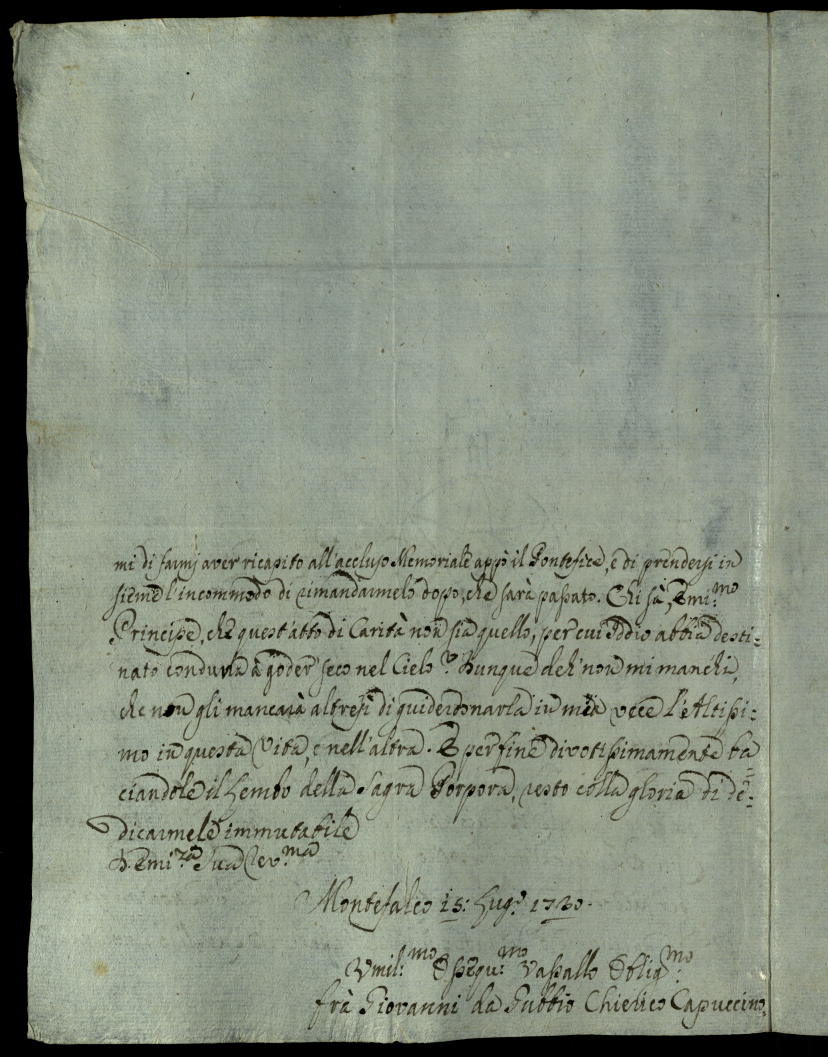 mi di farmj aver ricapito all'accluso Memoriale appò il Pontefice, e di prendersi in
sieme l'incommodo di rimandarmelo dopo, che sarà passato. Chi sà, Emi:mo
Principe, che quest'atto di Carità non sia quello, per cui Iddio abbia desti:
nato condurla à goder seco nel Cielo? Dunque deh' non mi manchi,
che non gli mancarà altresì di guiderdonarla in mia vece l'Altissi:
mo in questa Vita, e nell'altra. E per fine divotissimamente ba
ciandole il Lembo della Sagra Porpora, resto colla gloria di de:
dicarmele immutabile
D. Emi:za Sua Rev:ma
Montefalco 15: Lug:o 1720.
Vmil:mo Ossequ:mo Vassallo Oblig:mo
frà Giovanni da Gubbio Chielico Capuccino